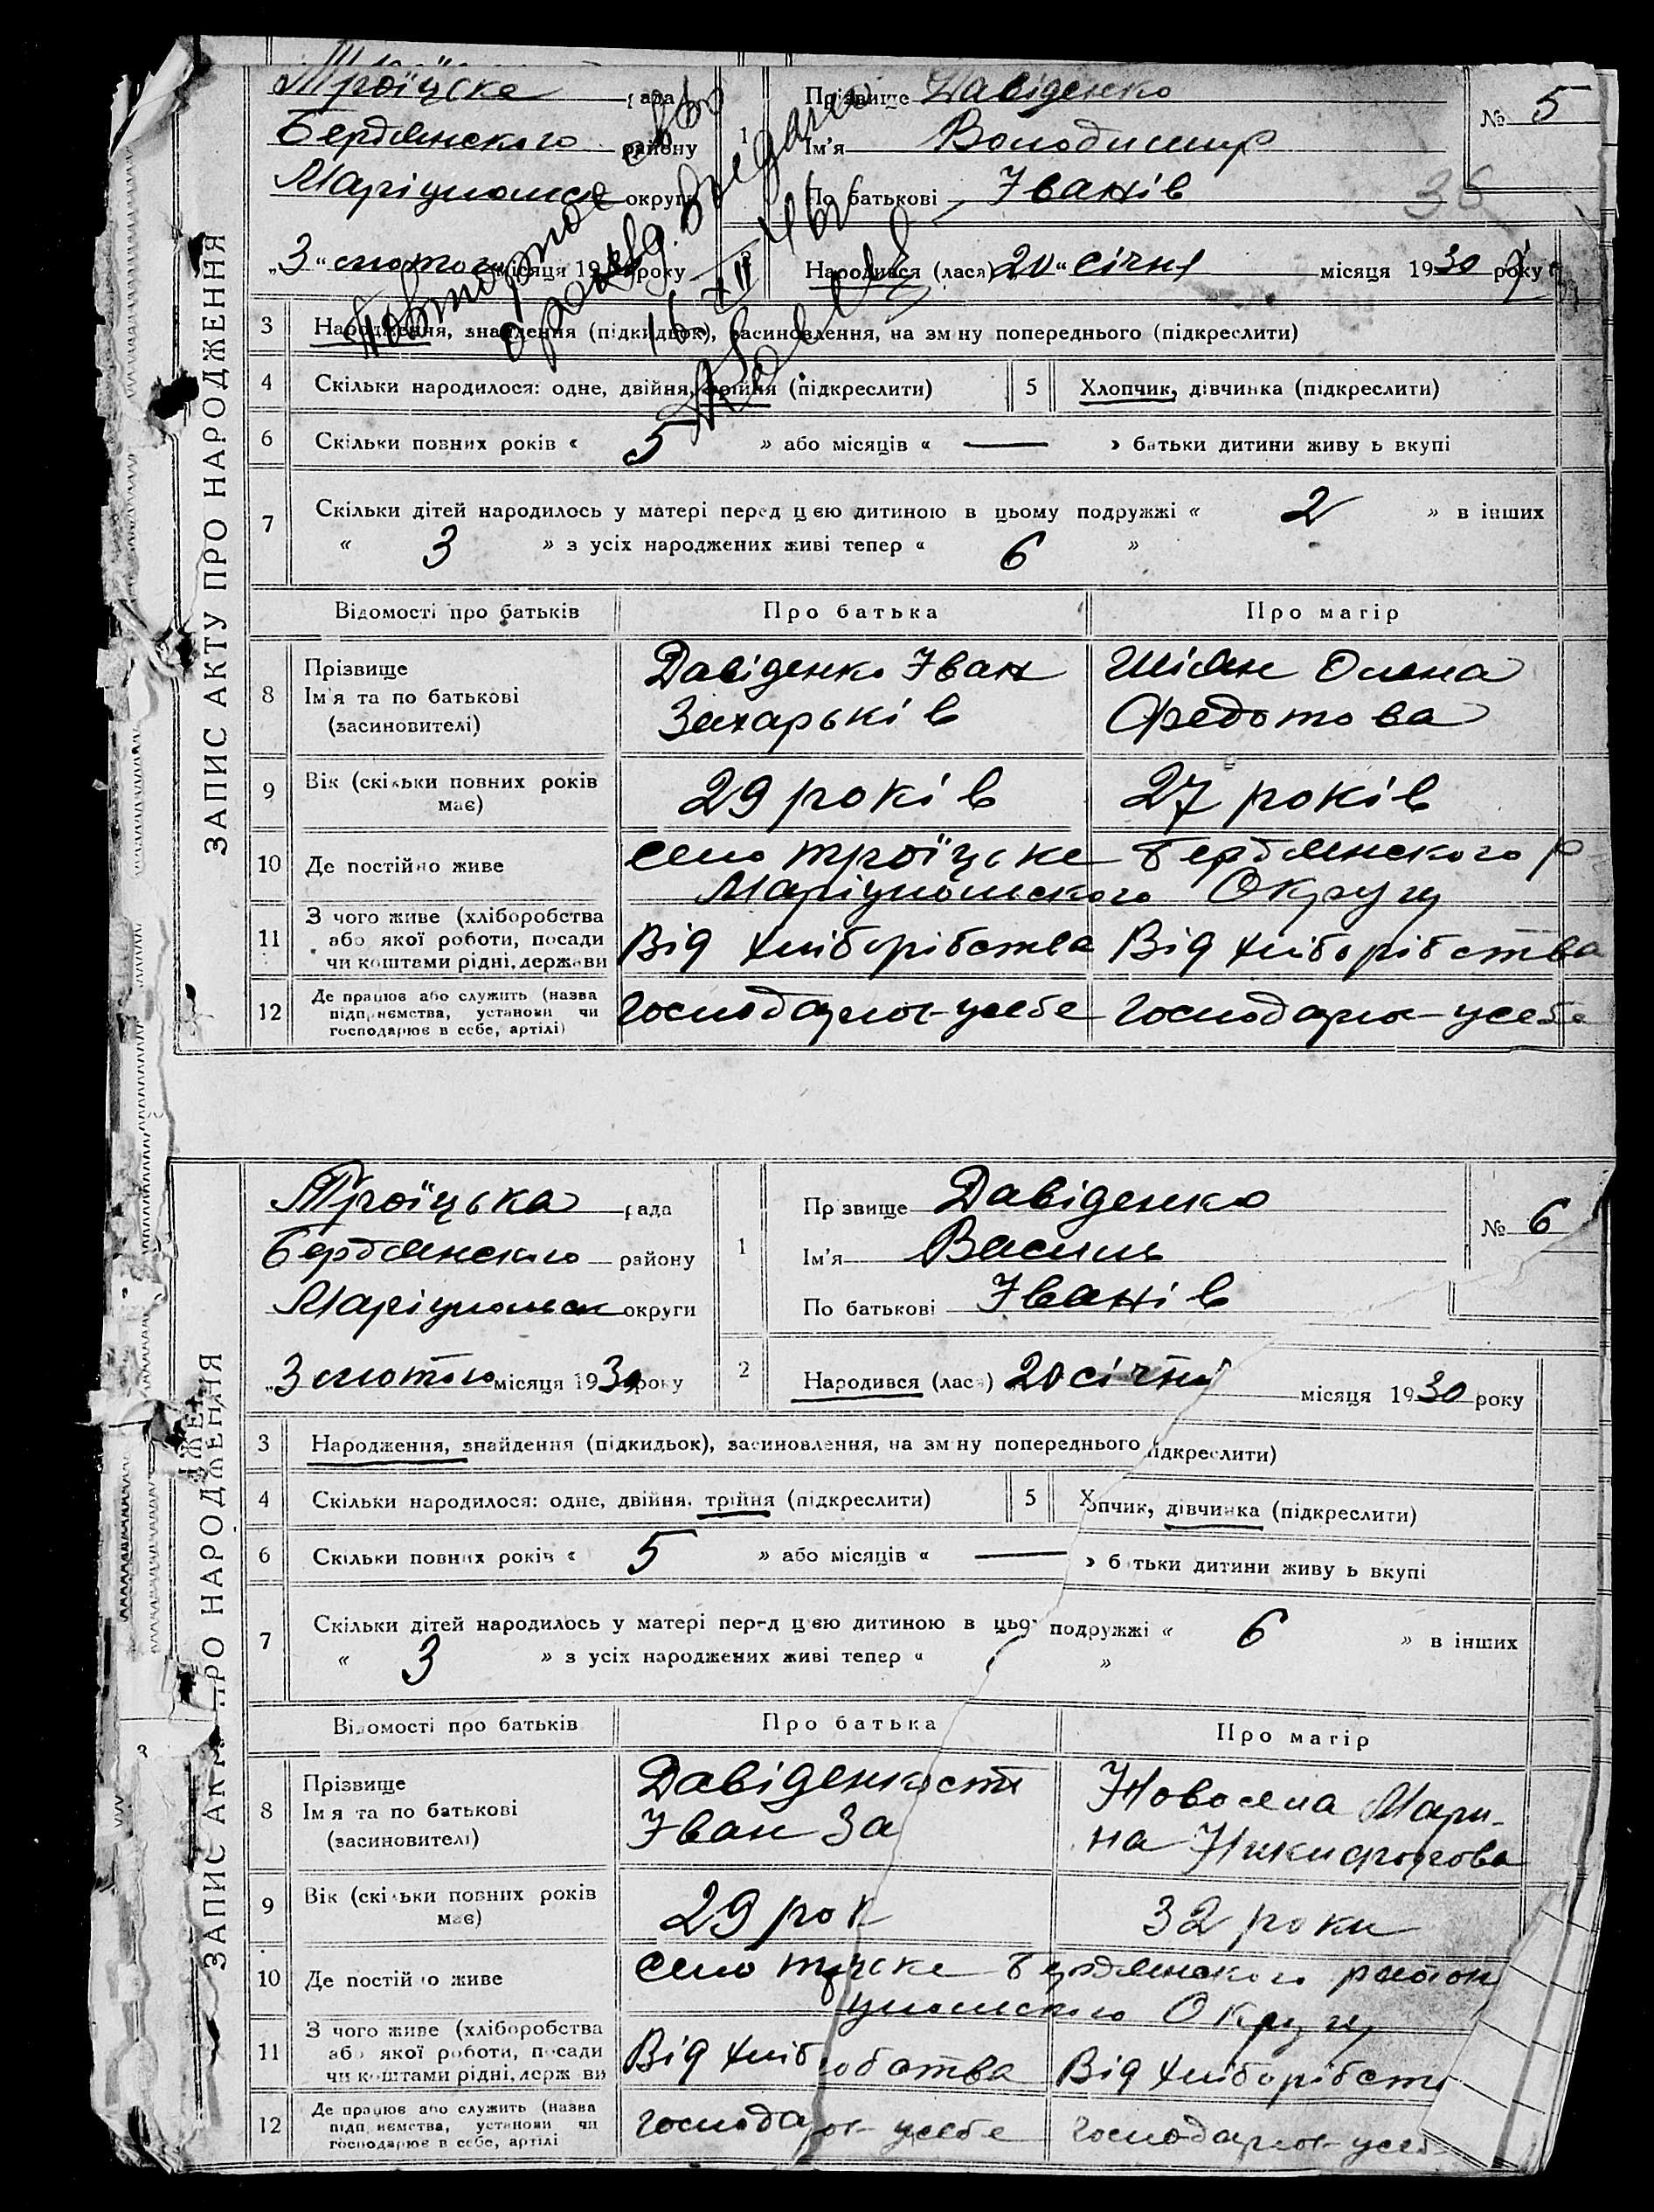 ЗАПИС АКТУ ПРО НАРОДЖЕННЯ
Троїцске рада
Бердянского району
Маріупольск округи
„3“ лютого місяця 19 року
Повторное
16 XII 46
№ 5
36
1 Прізвище Давіденко
Ім'я Володимир
По батькові Іванів
Народився (лася) 20 „ січня місяця 1930 року
3 Народження, знайдення (підкидьок), засиновлення, на зм ну попереднього (підкреслити)
4 Скільки народилося: одне, двійня, трійня (підкреслити)
5 Хлопчик, дівчинка (підкреслити)
6 Скільки повних років « 5 » або місяців « — » батьки дитини живу ь вкупі
7 Скільки дітей народилось у матері перед цією дитиною в цьому подружжі « 2 » в інших
« 3 » з усіх народжених живі тепер « 6 »
Відомості про батьків Про батька Про матір
8 Прізвище
Ім'я та по батькові
(засиновителі)
Давіденко Іван
Захарьків
Шіян Олена
Федотова
9 Вік (скільки повних років
має)
29 років 27 років
10 Де постійно живе
село троїцьке Бердянского р
Маріупольского Округу
11 З чого живе (хліборобства
або якої роботи, посади
чи коштами рідні, держави
Від хліборібства Від хліборібства
12 Де працює або служить (назва
підприємства, установи чи
господарює в себе, артілі)
господарює усебе господарює усебе
ЗАПИС АКТ ПРО НАРОДЖЕННЯ
Троїцька рада
Бердянского району
Маріупольск округи
„3 лютого місяця 1930 року
№ 6
1 Пр звище Давіденко
Ім'я Василь
По батькові Іванів
2 Народився (лася) 20 січня місяця 1930 року
3 Народження, знайдення (підкидьок), засиновлення, на зм ну попереднього ідкреслити)
4 Скільки народилося: одне, двійня, трійня (підкреслити)
5 Х опчик, дівчинка (підкреслити)
6 Скільки повних років « 5 » або місяців « — » б тьки дитини живу ь вкупі
7 Скільки дітей народилось у матері перед цією дитиною в цьо подружжі « 6 » в інших
« 3 » з усіх народжених живі тепер « »
Відомості про батьків Про батька Про матір
8 Прізвище
Ім я та по батькові
(засиновителі)
Іван За
Новосела Мари-
на Никифорова
9 Вік (скільки повних років
має)
29 рок 32 роки
10 Де постійно живе
село Бердянского район
Округу
11 З чого живе (хліборобства
або якої роботи, посади
чи коштами рідні, держ ви
Від хліб обства Від хліборібств
12 Де працює або служить (назва
підп иємства, установи чи
господарює в себе, артілі
господарює усебе господарює усеб